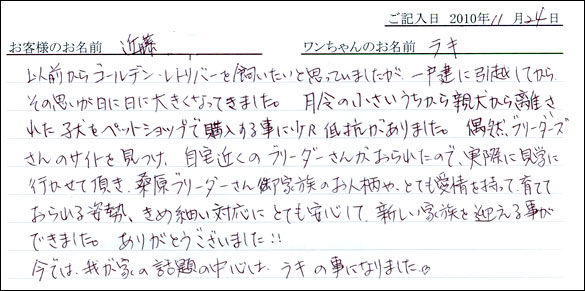 ご記入日 2010年11月24日
お客様のお名前 近藤 ワンちゃんのお名前 ラキ
以前からゴールデン・レトリバーを飼いたいと思っていましたが、一戸建に引越してから
その思いが日に日に大きくなってきました。 月令の小さいうちから親犬から離さ
れた子犬をペットショップで購入する事に少々低抗がありました。 偶然、ブリーダーズ
さんのサイトを見つけ、自宅近くのブリーダーさんがおられたので、実際に見学に
行かせて頂き、桑原ブリーダーさん御家族のお人柄や、とても愛情を持って育てて
おられる姿勢、きめ細い対応にとても安心して、新しい家族を迎える事が
できました。 ありがとうございました!!
今では、我が家の話題の中心は、ラキの事になりました。